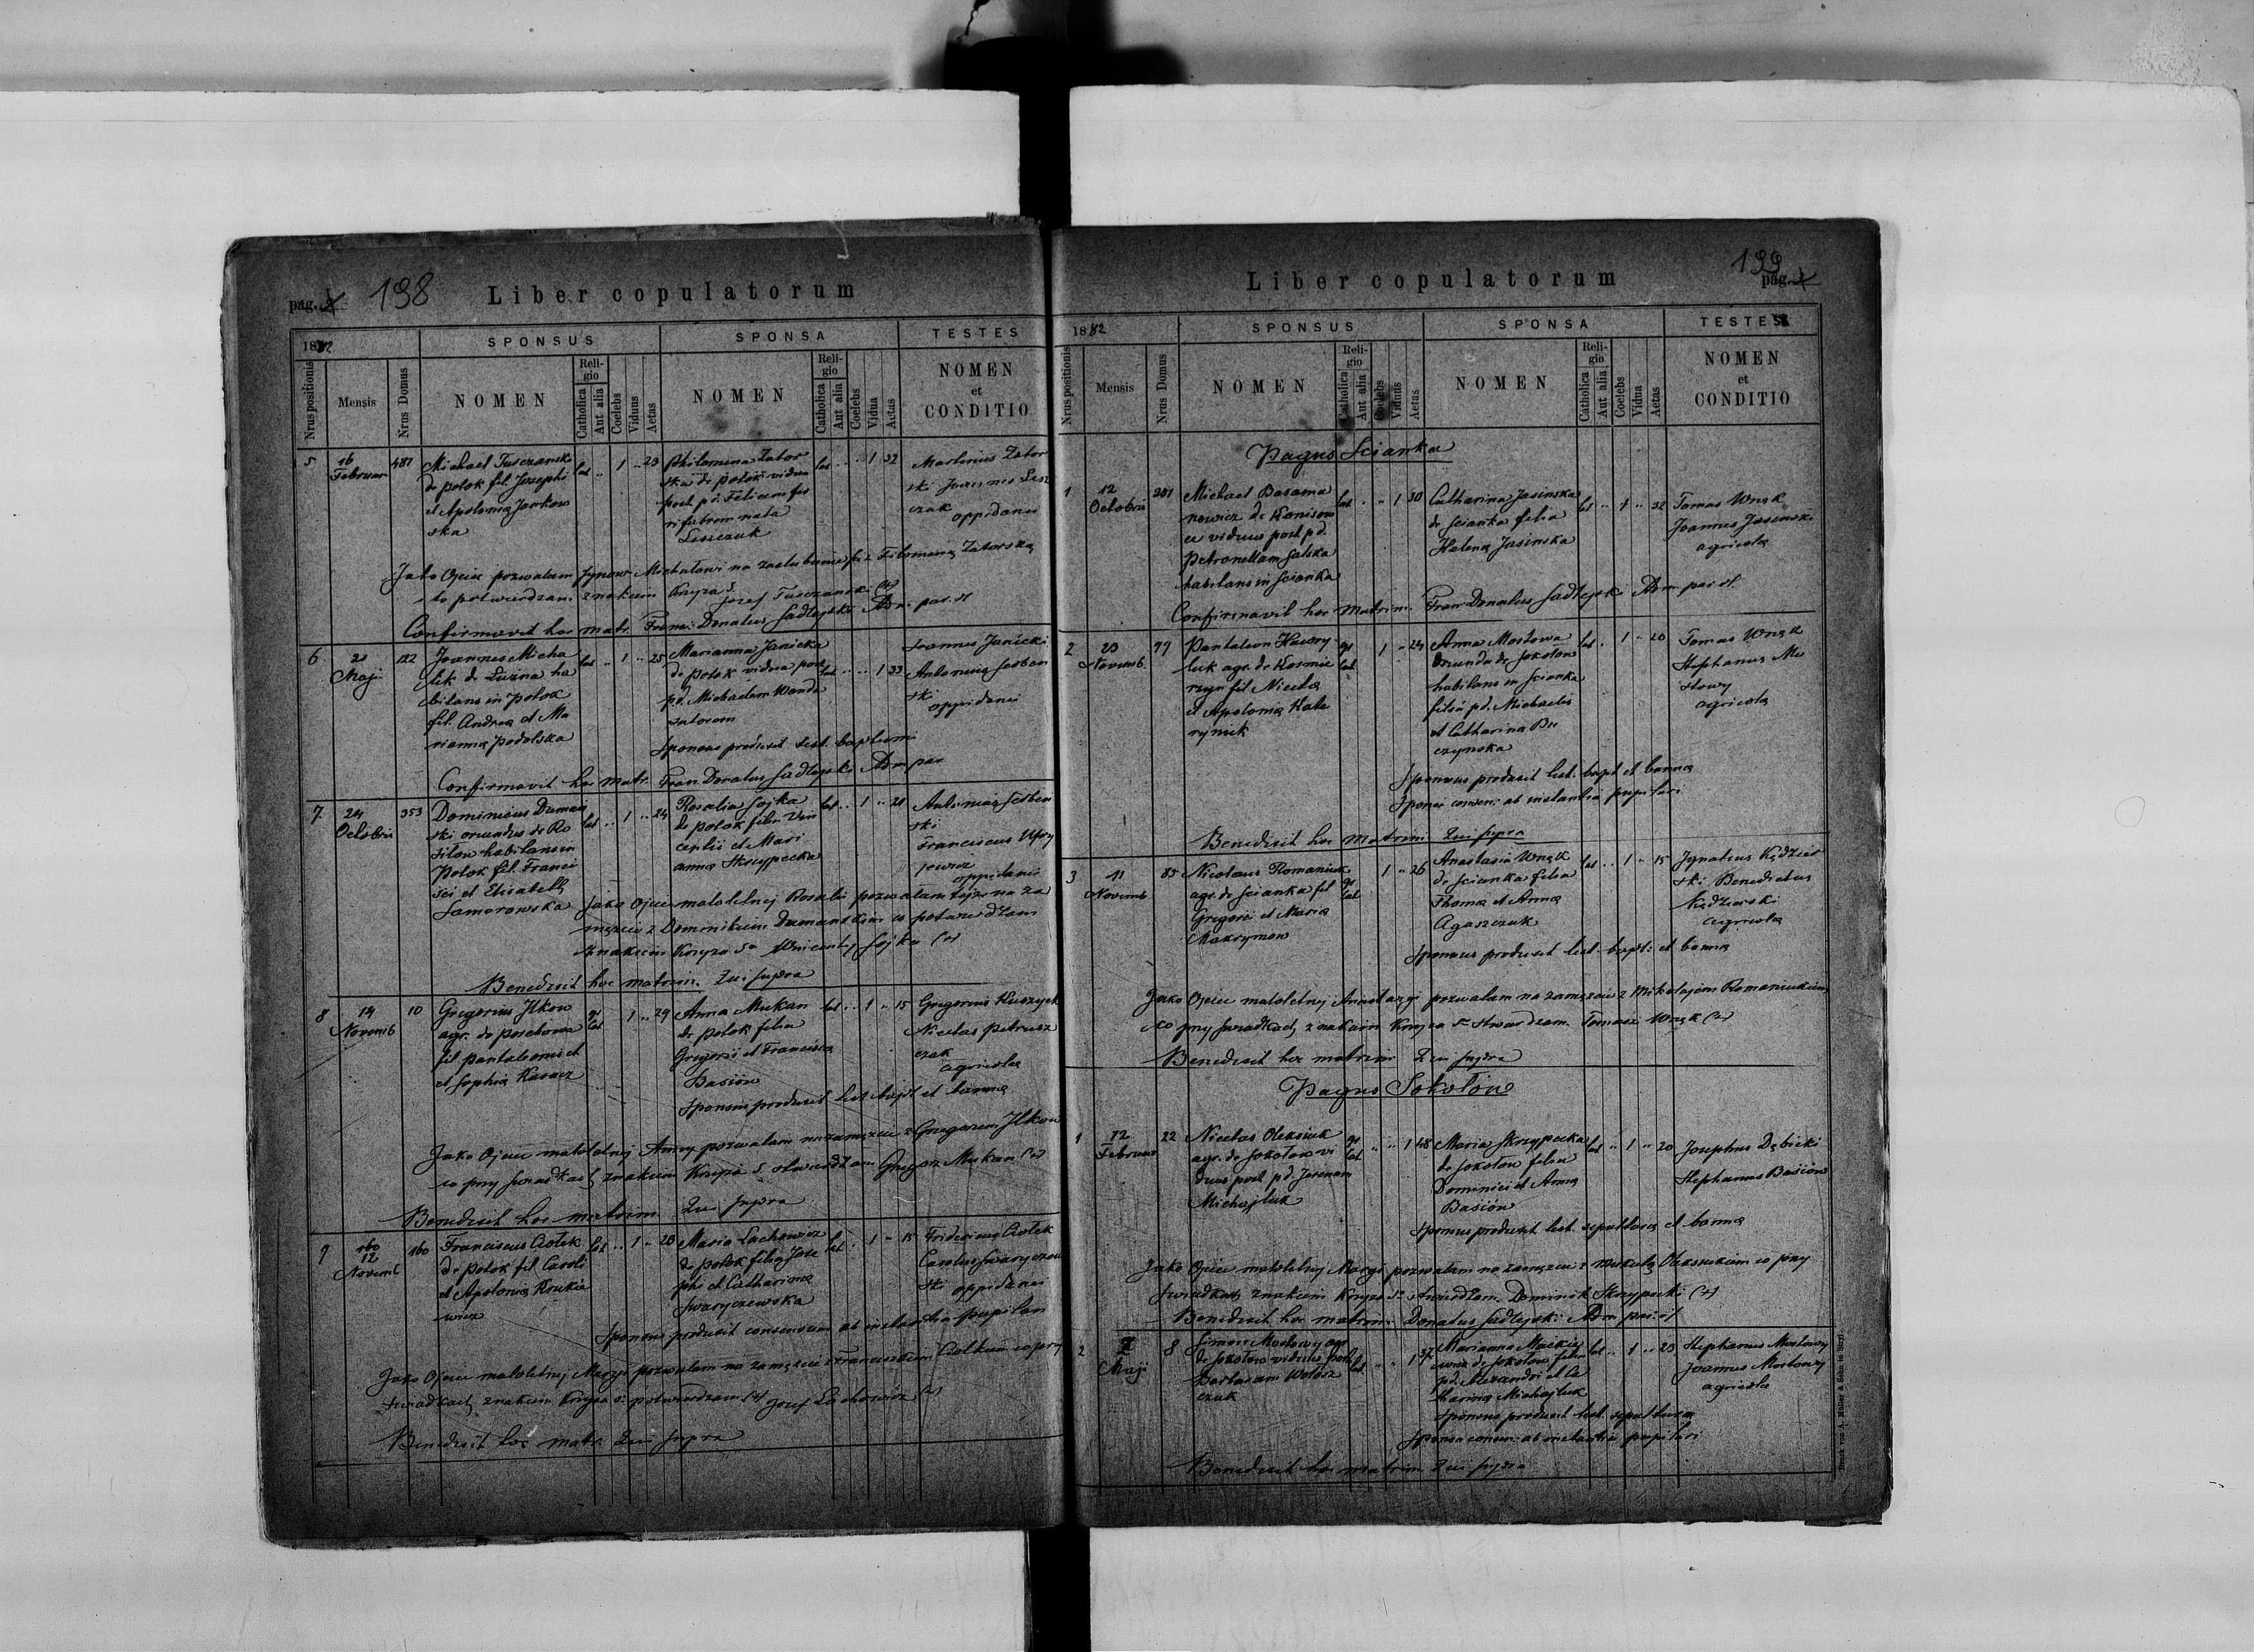 pag. 198
Liber copulatorum
1882
SPONSUS
SPONSA
TESTES
Nrus positionis
Mensis
Nrus Domus
NOMEN
Religio
Catholica
Aut alia
Coelebs
Viduus
Aetas
NOMEN
Religio
Catholica
Aut alia
Coelebs
Vidua
Aetas
NOMEN
et
CONDITIO
5
16
Februar
487
Michael
de Potok fil. Josephi
et Apolonia Jankow
ska
lat .. 1 .. 23
Philomena Zator
ska de Potok vidua
post pd. Felicem
nata
Leszczuk
lat .. .. 1 32
Martinus Zator
ski Joannes Lesz
czuk
oppidanei
Jako Ojciec pozwalam synowi Michałowi na zaślubienie się z Filomeną Zatorską
to potwierdzam znakiem Krzyża S. Józef
Confirmavit hoc matr. Franc. Donatus Sadlejski Adm. par. st
6
21
Maji
122
Joannes Micha
lik de Luzna ha
bitans in Potok
fil. Andrea et Ma
rianna Podolska
lat .. 1 .. 25
Marianna Janicka
de Potok vidua post
pd. Michaelem Wanda
lat .. .. 1 33
Joannes Janicki
Antonius Serben
ski
oppidanei
Sponsus produxit test. baptismi
Confirmavit hoc matr. Fran Donatus Sadlejski Adm par
7
24
Octobris
353
Dominicus Duman
ski oriundus de Ro
silow habitans in
Potok fil. Franci
sci et Elisabeth
Samorowska
lat .. 1 .. 24
Rosalia Sojka
de Potok filia Vin
centii et Mari
anna Skrzypecka
lat .. 1 .. 21
Antonius Serben
ski
Franciscus
oppidanei
Jako Ojciec małoletniej Rosalii pozwalam tejże na za
mężcie z Dominikiem Dumanskim co potwierdzam
znakiem Krzyża S. Wincenty Sojka (+)
Benedixit hoc matrim. Qui supra
8
14
Novemb
10
Gregorius Ilkow
agr. de Porchowa
fil Pantaleonis et
et Sophia
gr cat 1 .. 24
Anna Mukan
de Potok filia
Gregorii et Francisca
Basiów
lat .. 1 .. 15
Gregorius
Nicolas Petrusz
czak
agricola
Sponsus produxit test. bapt et banna
Jako Ojciec małoletniej Anny pozwalam na zamężcie z Grzegorzem Ilkow
co przy świadkach znakiem Krzyża S. stwierdzam Grzegorz Mukan (+)
Benedixit hoc matrim Qui supra
9
12
Novemb
160
Franciscus Ciołek
de Potok fil. Caroli
et Apolonia Krukie
wicz
lat .. 1 .. 20
Maria Lachowicz
de Potok filia Jose
phi et Catharina
Swaryczewska
lat .. 1 .. 15
Fridericus Ciołek
Carolus Swaryczew
ski oppidanei
Sponsus produxit consensum ab instantia pupilari
Jako Ojciec małoletniej Maryi pozwalam na zamężcie z Franciszkiem Ciołkiem co przy
świadkach znakiem Krzyża S. potwierdzam (+) Józef Lachowicz (+)
Benedixit hoc matr. Qui supra
199
pag.
Liber copulatorum
1882
SPONSUS
SPONSA
TESTES
Nrus positionis
Mensis
Nrus Domus
NOMEN
Religio
Catholica
Aut alia
Coelebs
Viduus
Aetas
NOMEN
Religio
Catholica
Aut alia
Coelebs
Vidua
Aetas
NOMEN
et
CONDITIO
Pagus Scianka
1
12
Octobris
201
Michael Basama
nowicz de
viduus post pd.
Petronellam Salska
habitans in Scianka
lat .. .. 1 30
Catharina Jasinska
de Scianka filia
Helena Jasinska
lat .. 1 .. 32
Tomas Wnęk
Joannes Jasinski
agricola
Confirmavit hoc Matrim. Fran Donatus Sadlejski Adm. par st.
2
23
Novemb.
77
Pantaleon Hawry
luk agr. de Kosmie
rzyn fil Nicola
et Apolonia Kate
rynuk
gr cat 1 .. 24
Anna Mostowa
oriunda de Sokołow
habitans in Scianka
filia pd. Michaelis
et Catharina Bu
czynska
lat . 1 .. 20
Tomas Wnęk
Stephanus Mo
stowy
agricola
Sponsus produxit test. bapt et banna
Sponsa consen. ab instantia pupilari
Benedixit hoc Matrim. Qui supra
3
11
Novemb
85
Nicolaus Romaniuk
agr. de Scianka fil
Gregorii et Maria
Makrymow
gr cat 1 .. 26
Anastasia Wnęk
de Scianka filia
Thoma et Anna
Agaszczuk
lat .. 1 .. 15
Ignatius Kędzier
ski Benedictus
Kędzierski
agricola
Sponsus produxit test. bapt. et banna
Jako Ojciec małoletniej Anastazyi pozwalam na zamężcie z Mikołajem Romaniukiem
co przy świadkach znakiem Krzyża S. stwierdzam. Tomasz Wnęk (+)
Benedixit hoc matrim Qui supra
Pagus Sokołów
1
12
Februar
22
Nicolas Oleksiuk
agr. de Sokołow vi
duus post pd
Michajluk
gr cat .. .. 1 48
Maria Skrzypecka
de Sokołow filia
Dominici et Anna
Basiów
lat .. 1 .. 20
Josephus Dębicki
Stephanus Basiów
Sponsus produxit test. sepultura et banna
Jako Ojciec małoletniej Maryi pozwalam na zamężcie z Mikołą Oleksiukiem co przy
świadkach znakiem Krzyża S. stwierdzam. Dominik Skrzypecki (+)
Benedixit hoc matrim. Donatus Sadlejski Adm par. st
2
Maji
8
Simon Mostowy agr
de Sokołow viduus post
Barbaram Wołosz
czuk
lat .. .. 1 37
Marianna Mackie
wicz de Sokołow filia
pd. Alexandri et Ca
tharina Michajluk
lat .. 1 .. 23
Stephanus Mostowy
Joannes Mostowy
agricola
Sponsus produxit test. sepultura
Sponsa consen. ab instantia pupilari
Benedixit hoc matrim Qui supra
Druck von A. Müller & Sohn in Stryj.